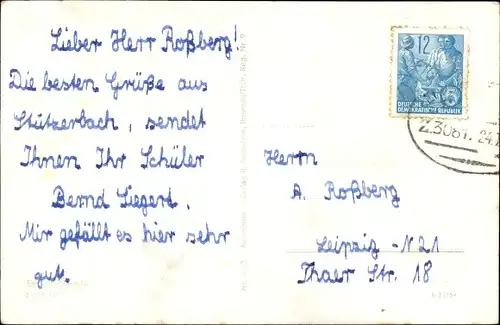 Lieber Herr Roßberg!
Die besten Grüße aus
Stützerbach, sendet
Ihnen Ihr Schüler
Bernd Siegert.
Mir gefällt es hier sehr
gut.
12
DEUTSCHE
DEMOKRATISCHE REPUBLIK
Z.3081. 24.
Herrn
A. Roßberg
Leipzig - N 21
Thaer Str. 18